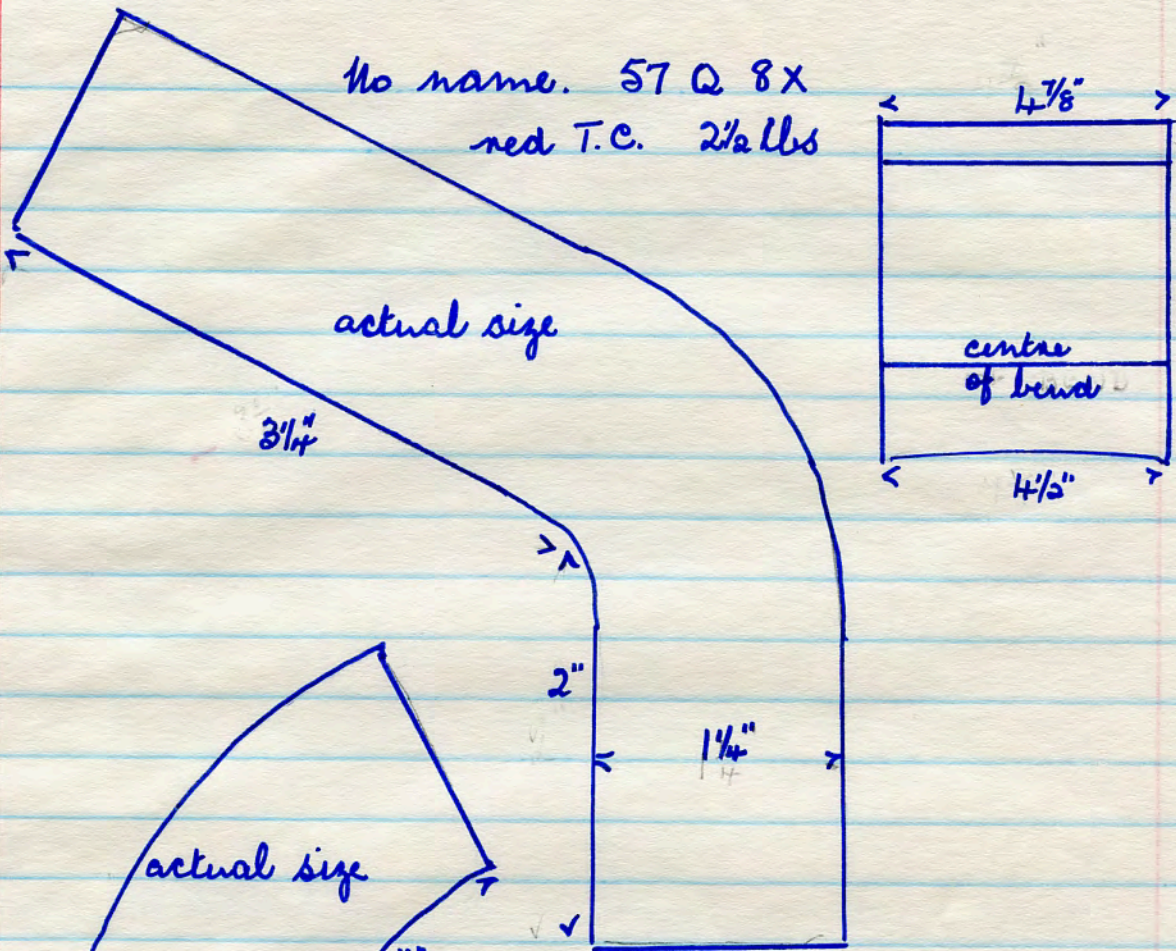 No name. 57 Q 8X
red T.C. 2½ lbs
4⅞"
actual size
centre
of bend
3¼"
4½"
2"
1¼"
actual size